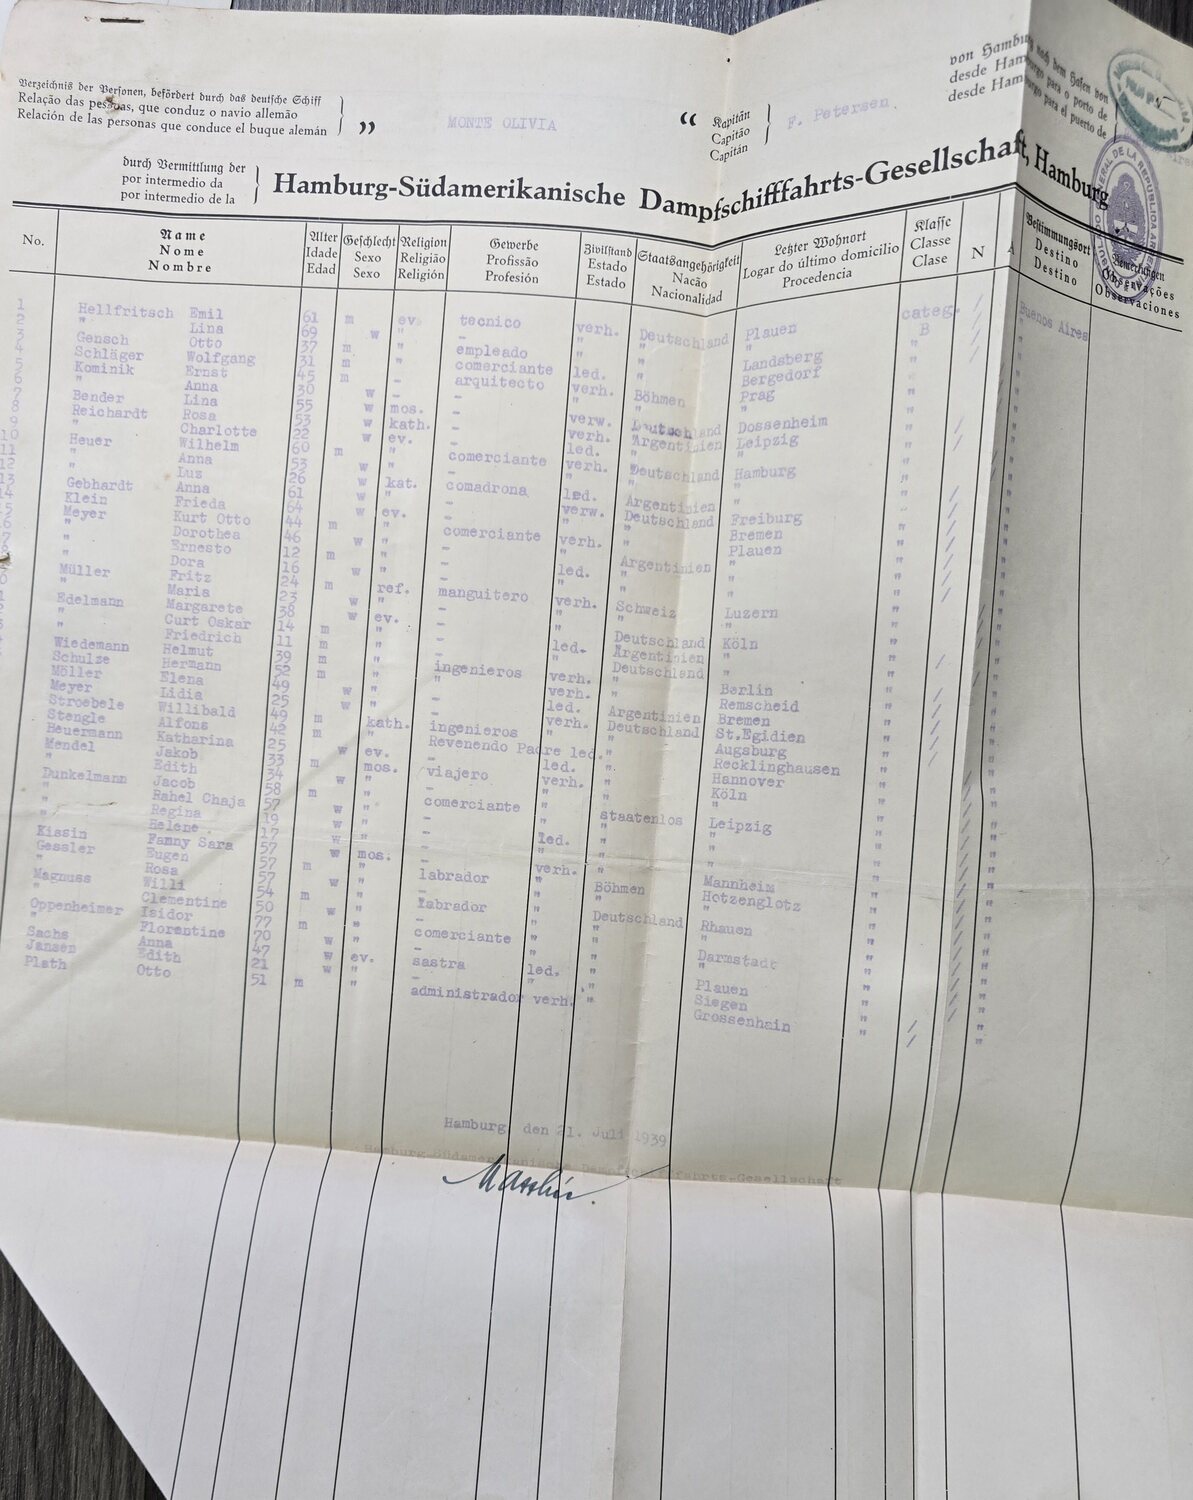 Verzeichnis der Personen, befördert durch das deutsche Schiff
Relação das pessoas, que conduz o navio allemão
Relación de las personas que conduce el buque alemán
„ MONTE OLIVIA “
Kapitän
Capitão
Capitán
F. Petersen.
von Hamburg nach dem Hafen von
desde Hamburgo para o porto de
desde Hamburgo para el puerto de
durch Vermittlung der
por intermedio da
por intermedio de la
Hamburg-Südamerikanische Dampfschifffahrts-Gesellschaft, Hamburg
No.
Name
Nome
Nombre
Alter
Idade
Edad
Geschlecht
Sexo
Sexo
Religion
Religião
Religión
Gewerbe
Profissão
Profesión
Zivilstand
Estado
Estado
Staatsangehörigkeit
Nacão
Nacionalidad
Letzter Wohnort
Logar do último domicilio
Procedencia
Klasse
Classe
Clase
N
A
Bestimmungsort
Destino
Destino
Bemerkungen
Observações
Observaciones
1 Hellfritsch Emil 61 m ev. tecnico verh. Deutschland Plauen categ. B / Buenos Aires
2 " Lina 69 w " - " " " " / "
3 Gensch Otto 37 m " empleado " " Landsberg " / "
4 Schläger Wolfgang 31 m " comerciante led. " Bergedorf " / "
5 Kominik Ernst 45 m - arquitecto verh. Böhmen Prag " "
6 " Anna 30 w - - " " " " "
7 Bender Lina 55 w mos. - verw. Deutschland Dossenheim " "
8 Reichardt Rosa 53 w kath. - verh. Argentinien Leipzig " / "
9 " Charlotte 22 w ev. - led. " " " / "
10 Heuer Wilhelm 60 m " comerciante verh. Deutschland Hamburg " "
11 " Anna 53 w " - " " " " "
12 " Luz 26 w kat. comadrona led. Argentinien " " / "
13 Gebhardt Anna 61 w " - verw. Deutschland Freiburg " / "
14 Klein Frieda 64 w ev. - " " Bremen " / "
Meyer Kurt Otto 44 m " comerciante verh. " Plauen " / "
" Dorothea 46 w " - " Argentinien " " / "
" Ernesto 12 m " - led. " " " / "
" Dora 16 w " - " " " " / "
Müller Fritz 24 m ref. manguitero verh. Schweiz Luzern " "
" Maria 23 w " - " " " " "
Edelmann Margarete 38 w ev. - " Deutschland Köln " "
" Curt Oskar 14 m " - led. Argentinien " " / "
" Friedrich 11 m " - " Deutschland " " "
Wiedemann Helmut 39 m " ingenieros verh. " Berlin " / "
Schulze Hermann 52 m " " verh. " Remscheid " / "
Möller Elena 49 w " - led. Argentinien Bremen " / "
Meyer Lidia 25 w " - verh. Deutschland St.Egidien " / "
Stroebele Willibald 49 m kath. ingenieros " " Augsburg " / "
Stengle Alfons 42 m " Revenendo Padre led. " Recklinghausen " "
Heuermann Katharina 25 w ev. - led. " Hannover " "
Mendel Jakob 33 m mos. viajero verh. " Köln " "
" Edith 34 w " - " " " " "
Dunkelmann Jacob 58 m " comerciante " staatenlos Leipzig " "
" Rahel Chaja 57 w " - " " " " "
" Regina 19 w " - led. " " " "
" Helene 17 w " - " " " " "
Kissin Fanny Sara 57 w mos. - verh. " Mannheim " "
Gessler Eugen 57 m " labrador " Böhmen Hotzenglotz " "
" Rosa 57 w " - " " " " "
Magnuss Willi 54 m " labrador " Deutschland Rhauen " "
" Clementine 50 w " - " " " " "
Oppenheimer Isidor 77 m " comerciante " " Darmstadt " "
" Florentine 70 w " - " " " " "
Sachs Anna 47 w ev. sastra led. " Plauen " "
Jansen Edith 21 w " - " " Siegen " / "
Plath Otto 51 m " administrador verh. " Grossenhain " / "
Hamburg, den 21. Juli 1939
Hamburg-Südamerikanische Dampfschifffahrts-Gesellschaft